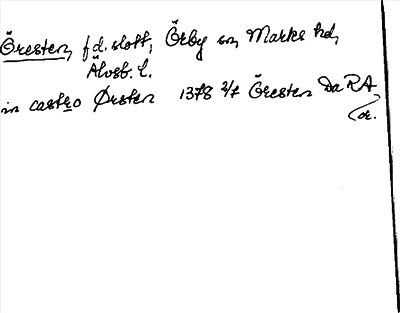 Öresten, f.d. slott, Örby sn, Marks hd,
Älvsb. l.
in castro Ørsten 1378 2/7 Öresten Da RA
or.